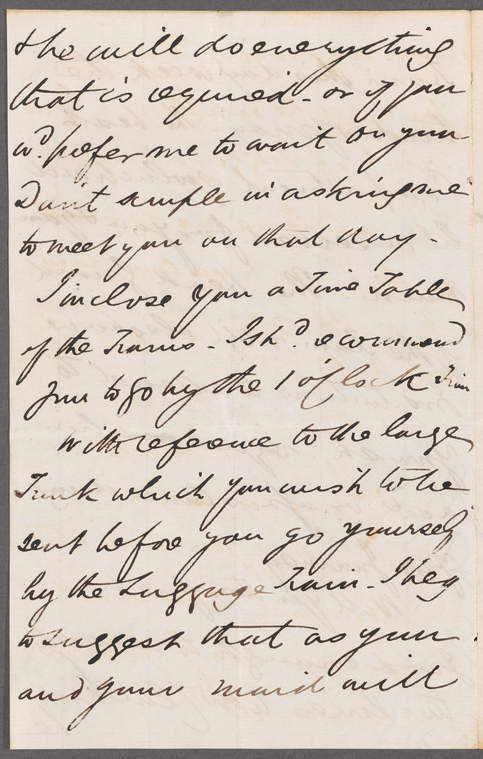 & he will do everything
that is required - or if you
wd. prefer me to wait on you
Don't scruple in asking me
to meet you on that day -
I inclose you a Time Table
of the Trains - I shd. recommend
you to go by the 1 o'Clock Train
With reference to the large
Trunk which you wish to be
sent before you go yourself
by the Luggage Train - I beg
to suggest that as you
and your maid will